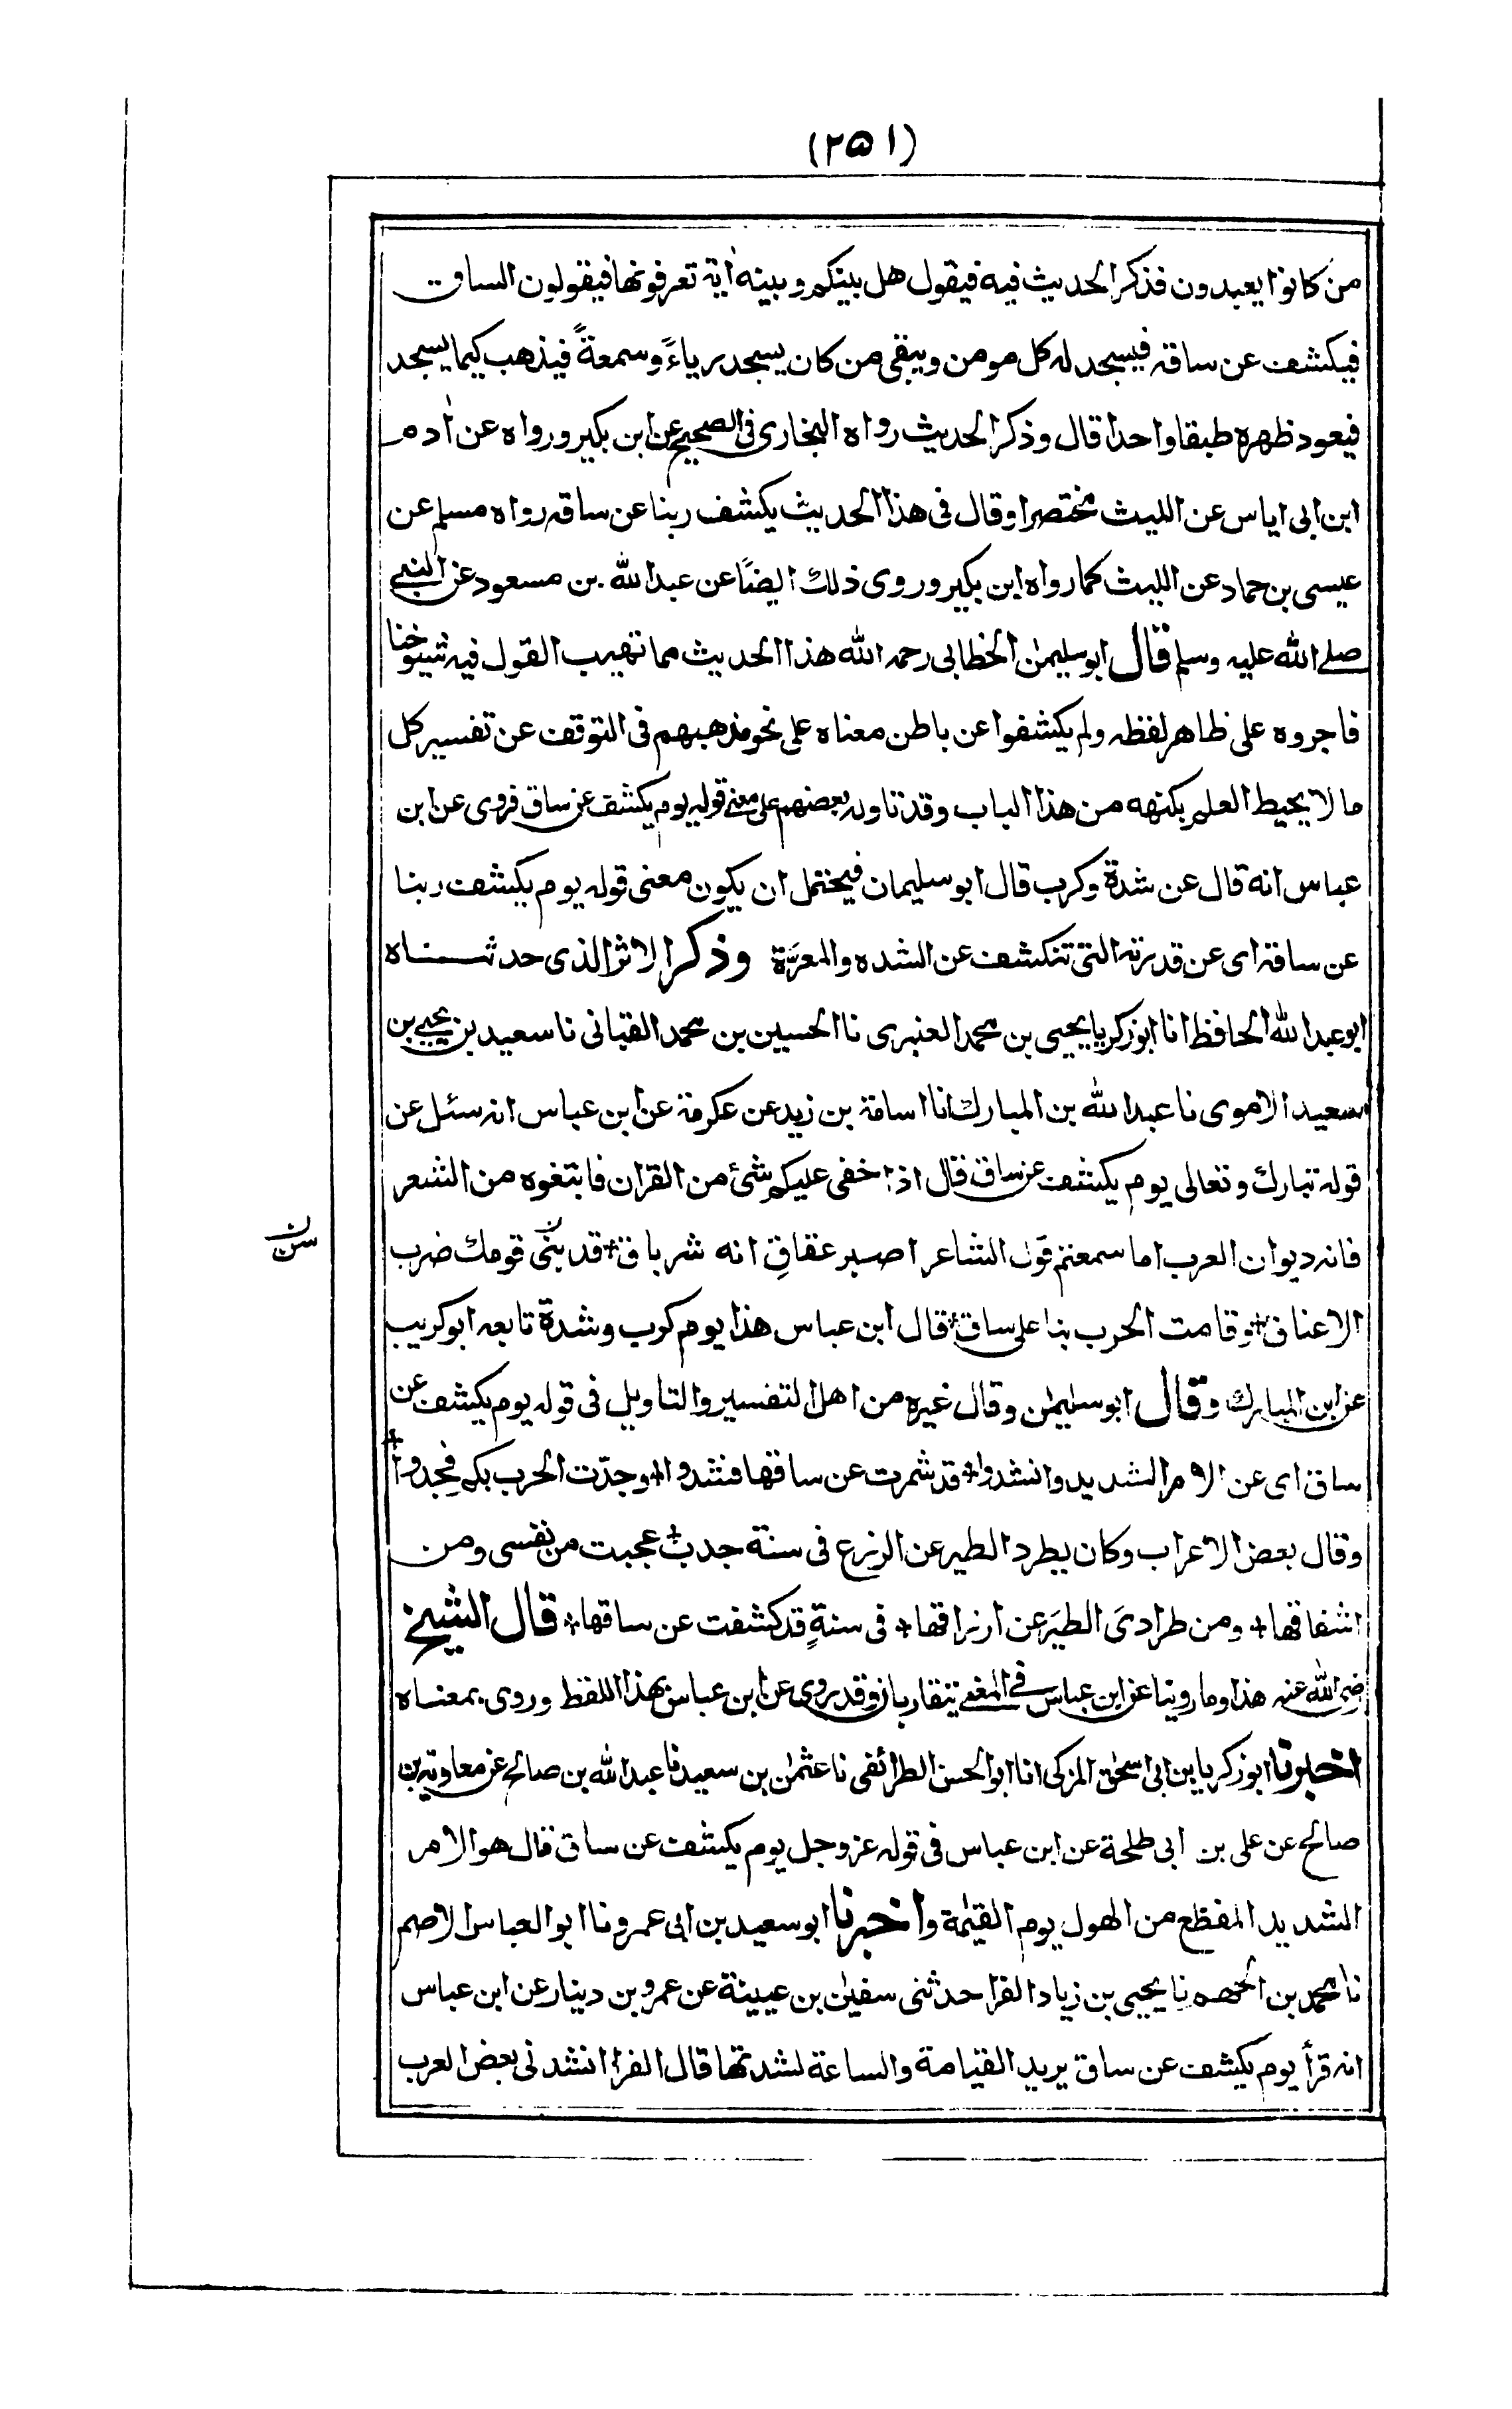 (٢٥١)
من كانوا يعبدون فذكر الحديث فيه فيقول هل بينكم وبينه اٰية تعرفونها فيقولون الساق
فيكشف عن ساقه فيسجد له كل مومن ويبقى من كان يسجد رياءً وسمعةً فيذهب كيما يسجد
فيعود ظهره طبقا واحدا قال وذكر الحديث رواه البخارى فى الصحيح عن ابن بكير ورواه عن اٰدم
ابن ابى اياس عن الليث مختصرا وقال فى هذا الحديث يكشف ربنا عن ساقه رواه مسلم عن
عيسى بن حماد عن الليث كما رواه ابن بكير وروى ذلك ايضًا عن عبد الله بن مسعود عن النبى
صلے الله عليه وسلم قال ابو سليمٰن الخطابى رحمه الله هذا الحديث مما تهيب القول فيه شيوخنا
فاجروه على ظاهر لفظه ولم يكشفوا عن باطن معناه على نحو مذهبهم فى التوقف عن تفسير كل
ما لا يحيط العلم بكنهه من هذا الباب وقد تاوله بعضهم على معنى قوله يوم يكشف عن ساق فروى عن ابن
عباس انه قال عن شدة وكرب قال ابو سليمان فيحتمل ان يكون معنى قوله يوم يكشف ربنا
عن ساقه اى عن قدرته التى تنكشف عن الشده والمعرّة وذكر الاثر الذى حدثناه
ابو عبد الله الحافظ انا ابو زكريا يحيى بن محمد العنبرى نا الحسين بن محمد القبانى نا سعيد بن يحيى بن
سعيد الاموى نا عبد الله بن المبارك انا اسامة بن زيد عن عكرمة عن ابن عباس انه سئل عن
قوله تبارك وتعالى يوم يكشف عن ساق قال اذا خفى عليكم شئ من القران فابتغوه من الشعر
فانه ديوان العرب اما سمعتم قول الشاعر اصبر عقاقِ انه شر باق+ قد بنّى قومك ضرب
سن ن
الاعناق+ وقامت الحرب بنا على ساق+ قال ابن عباس هذا يوم كرب وشدة تابعه ابو كريب
عن ابن المبارك وقال ابو سليمٰن وقال غيره من اهل التفسير والتاويل فى قوله يوم يكشف عن
ساق اى عن الامر الشديد وانشدوا+ قد شمرت عن ساقها فشدوا+ وجدّت الحرب بكم فجدوا+
وقال بعض الاعراب وكان يطرد الطير عن الزرع فى سنة جدب+ عجبت من نفسى ومن
اشفاقها+ ومن طرادىَ الطيَر عن ارزاقها+ فى سنةٍ قد كشفت عن ساقها+ قال الشيخ
رضى الله عنه هذا وما روينا عن ابن عباس فى المعنى يتقاربان وقد روى عن ابن عباس بهذا اللفظ وروى بمعناه
اخبرنا ابو زكريا بن ابى اسحٰق المزكى انا ابو الحسن الطرائفى نا عثمٰن بن سعيد نا عبد الله بن صالح عن معاوية بن
صالح عن على بن ابى طلحة عن ابن عباس فى قوله عز وجل يوم يكشف عن ساق قال هو الامر
الشديد المفظع من الهول يوم القيٰمة واخبرنا ابو سعيد بن ابى عمرو نا ابو العباس الاصم
نا محمد بن الجهم نا يحيى بن زياد الفرا حدثنى سفيٰن بن عيينة عن عمرو بن دينار عن ابن عباس
انه قرأ يوم يكشف عن ساق يريد القيامة والساعة لشدتها قال الفرا انشدنى بعض العرب